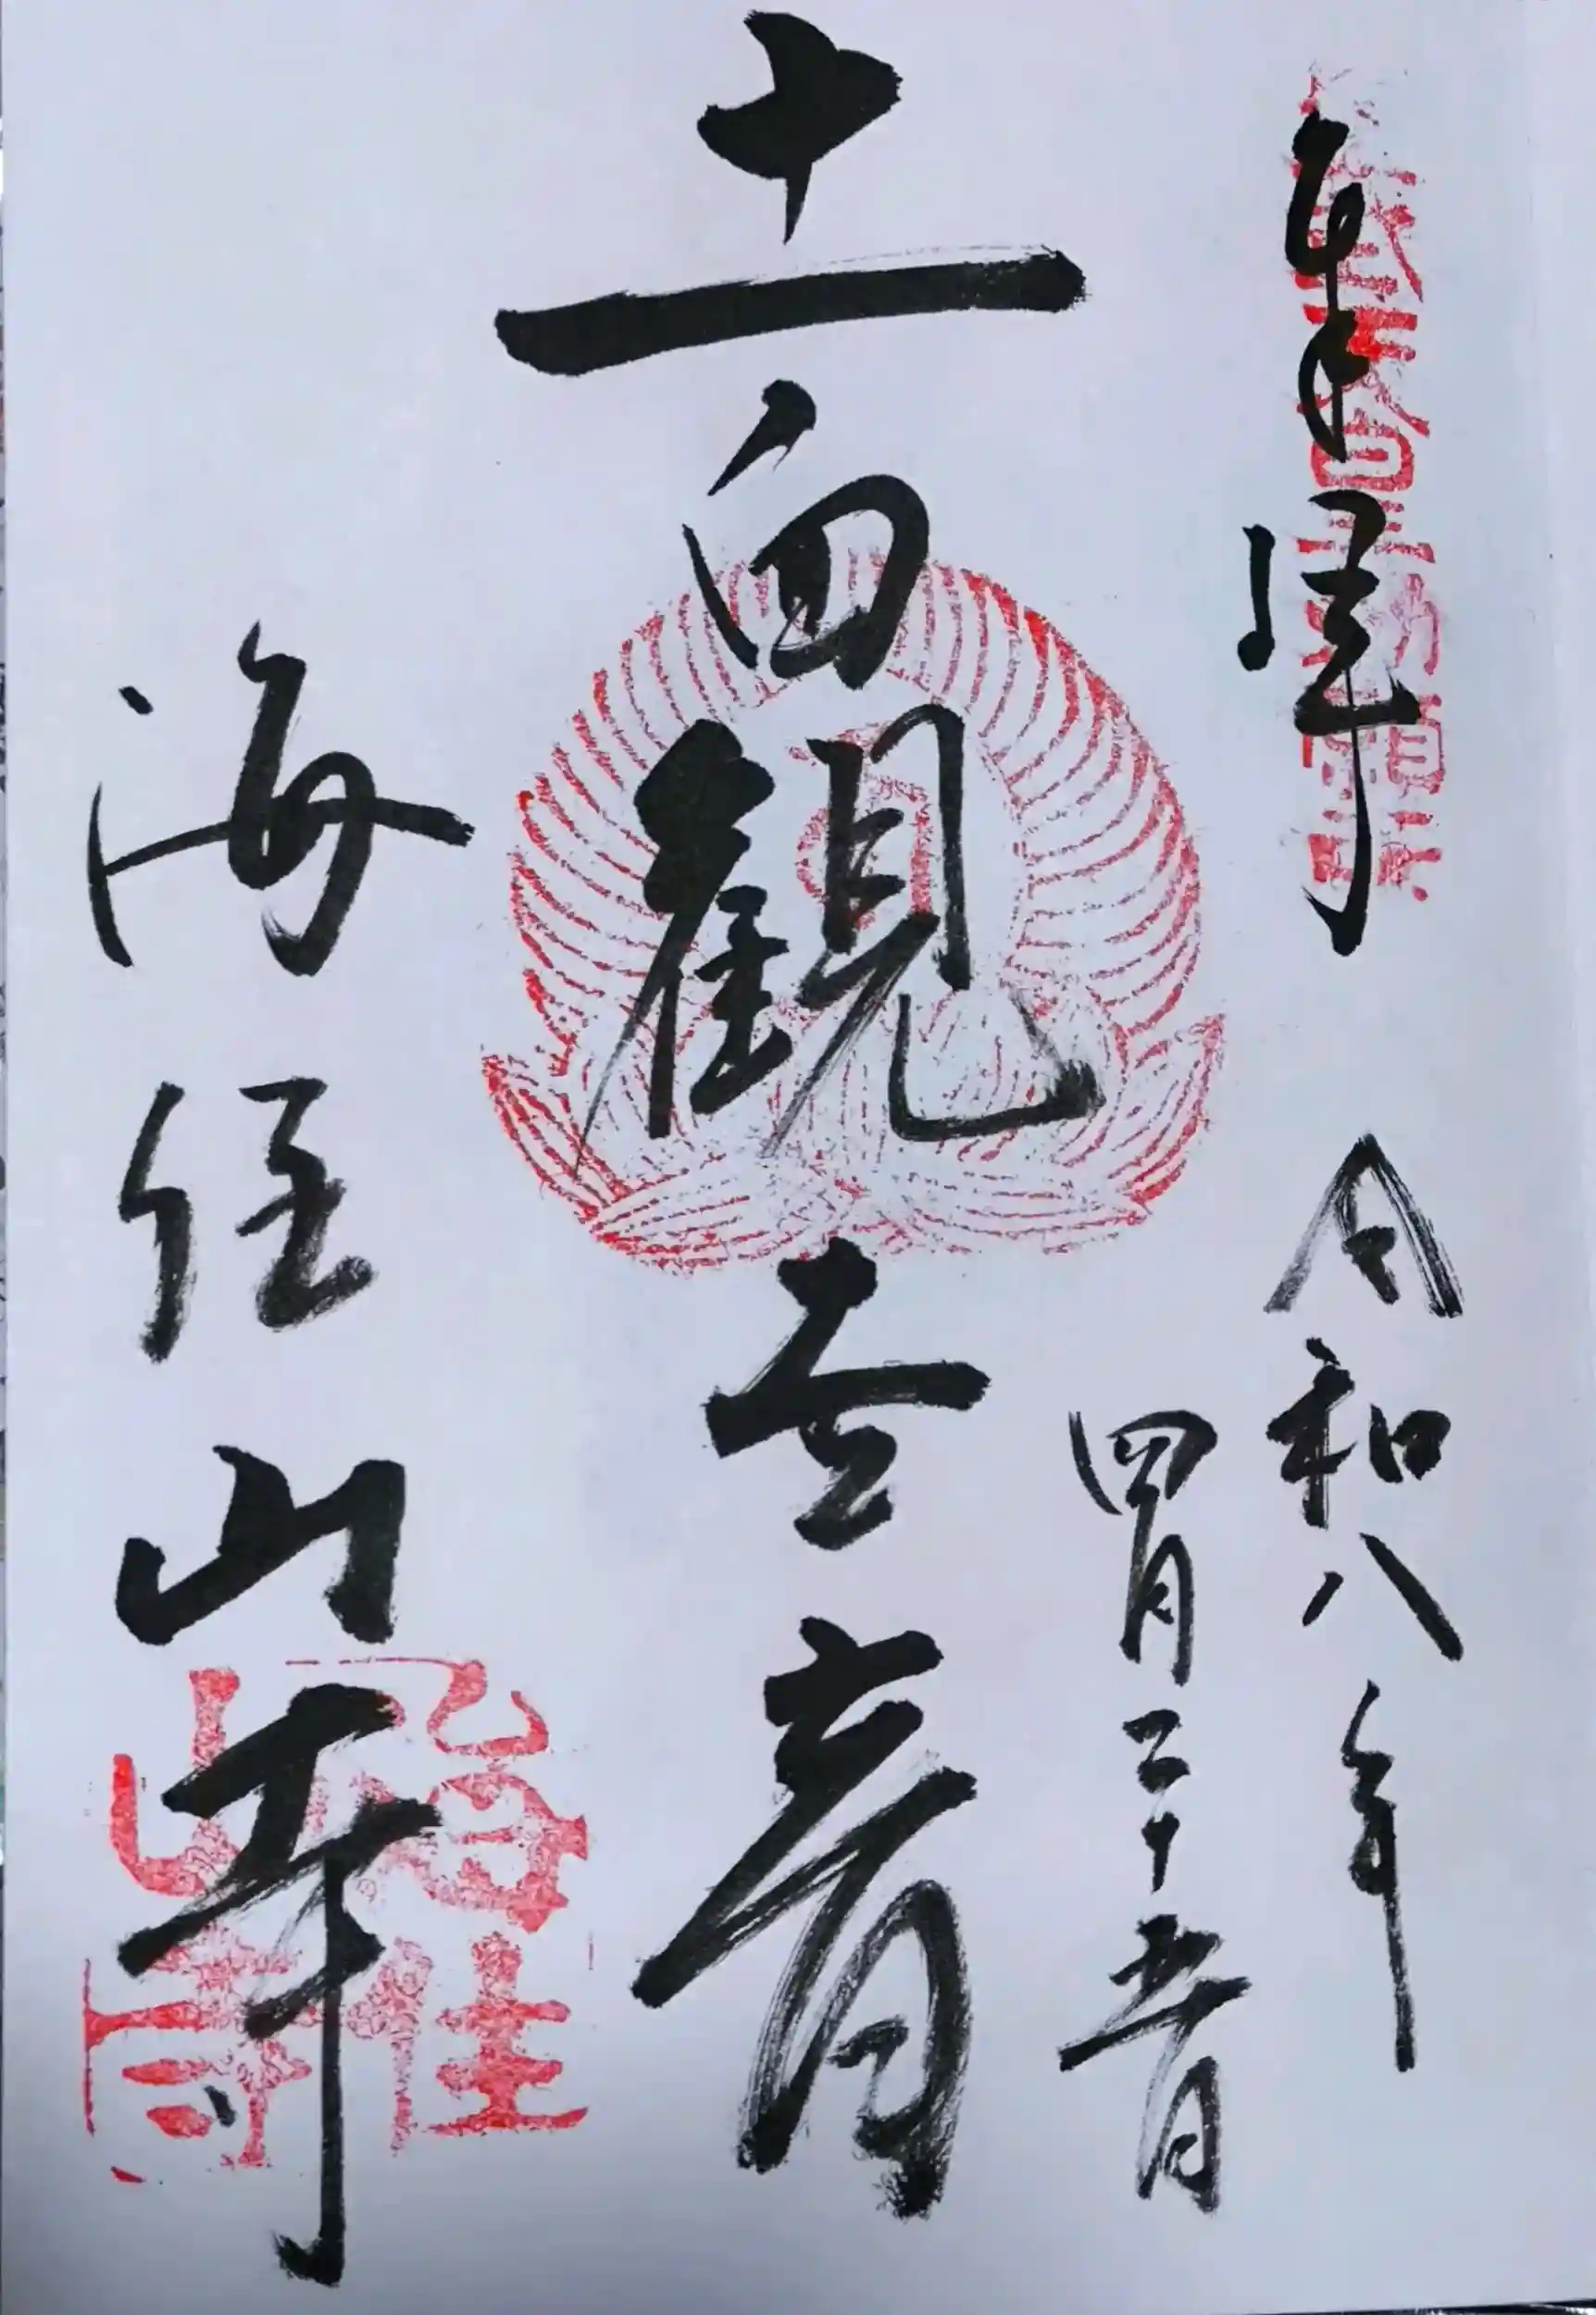 奉拝
令和八年
四月二十五日
十一面観世音
海住山寺
海住
山寺